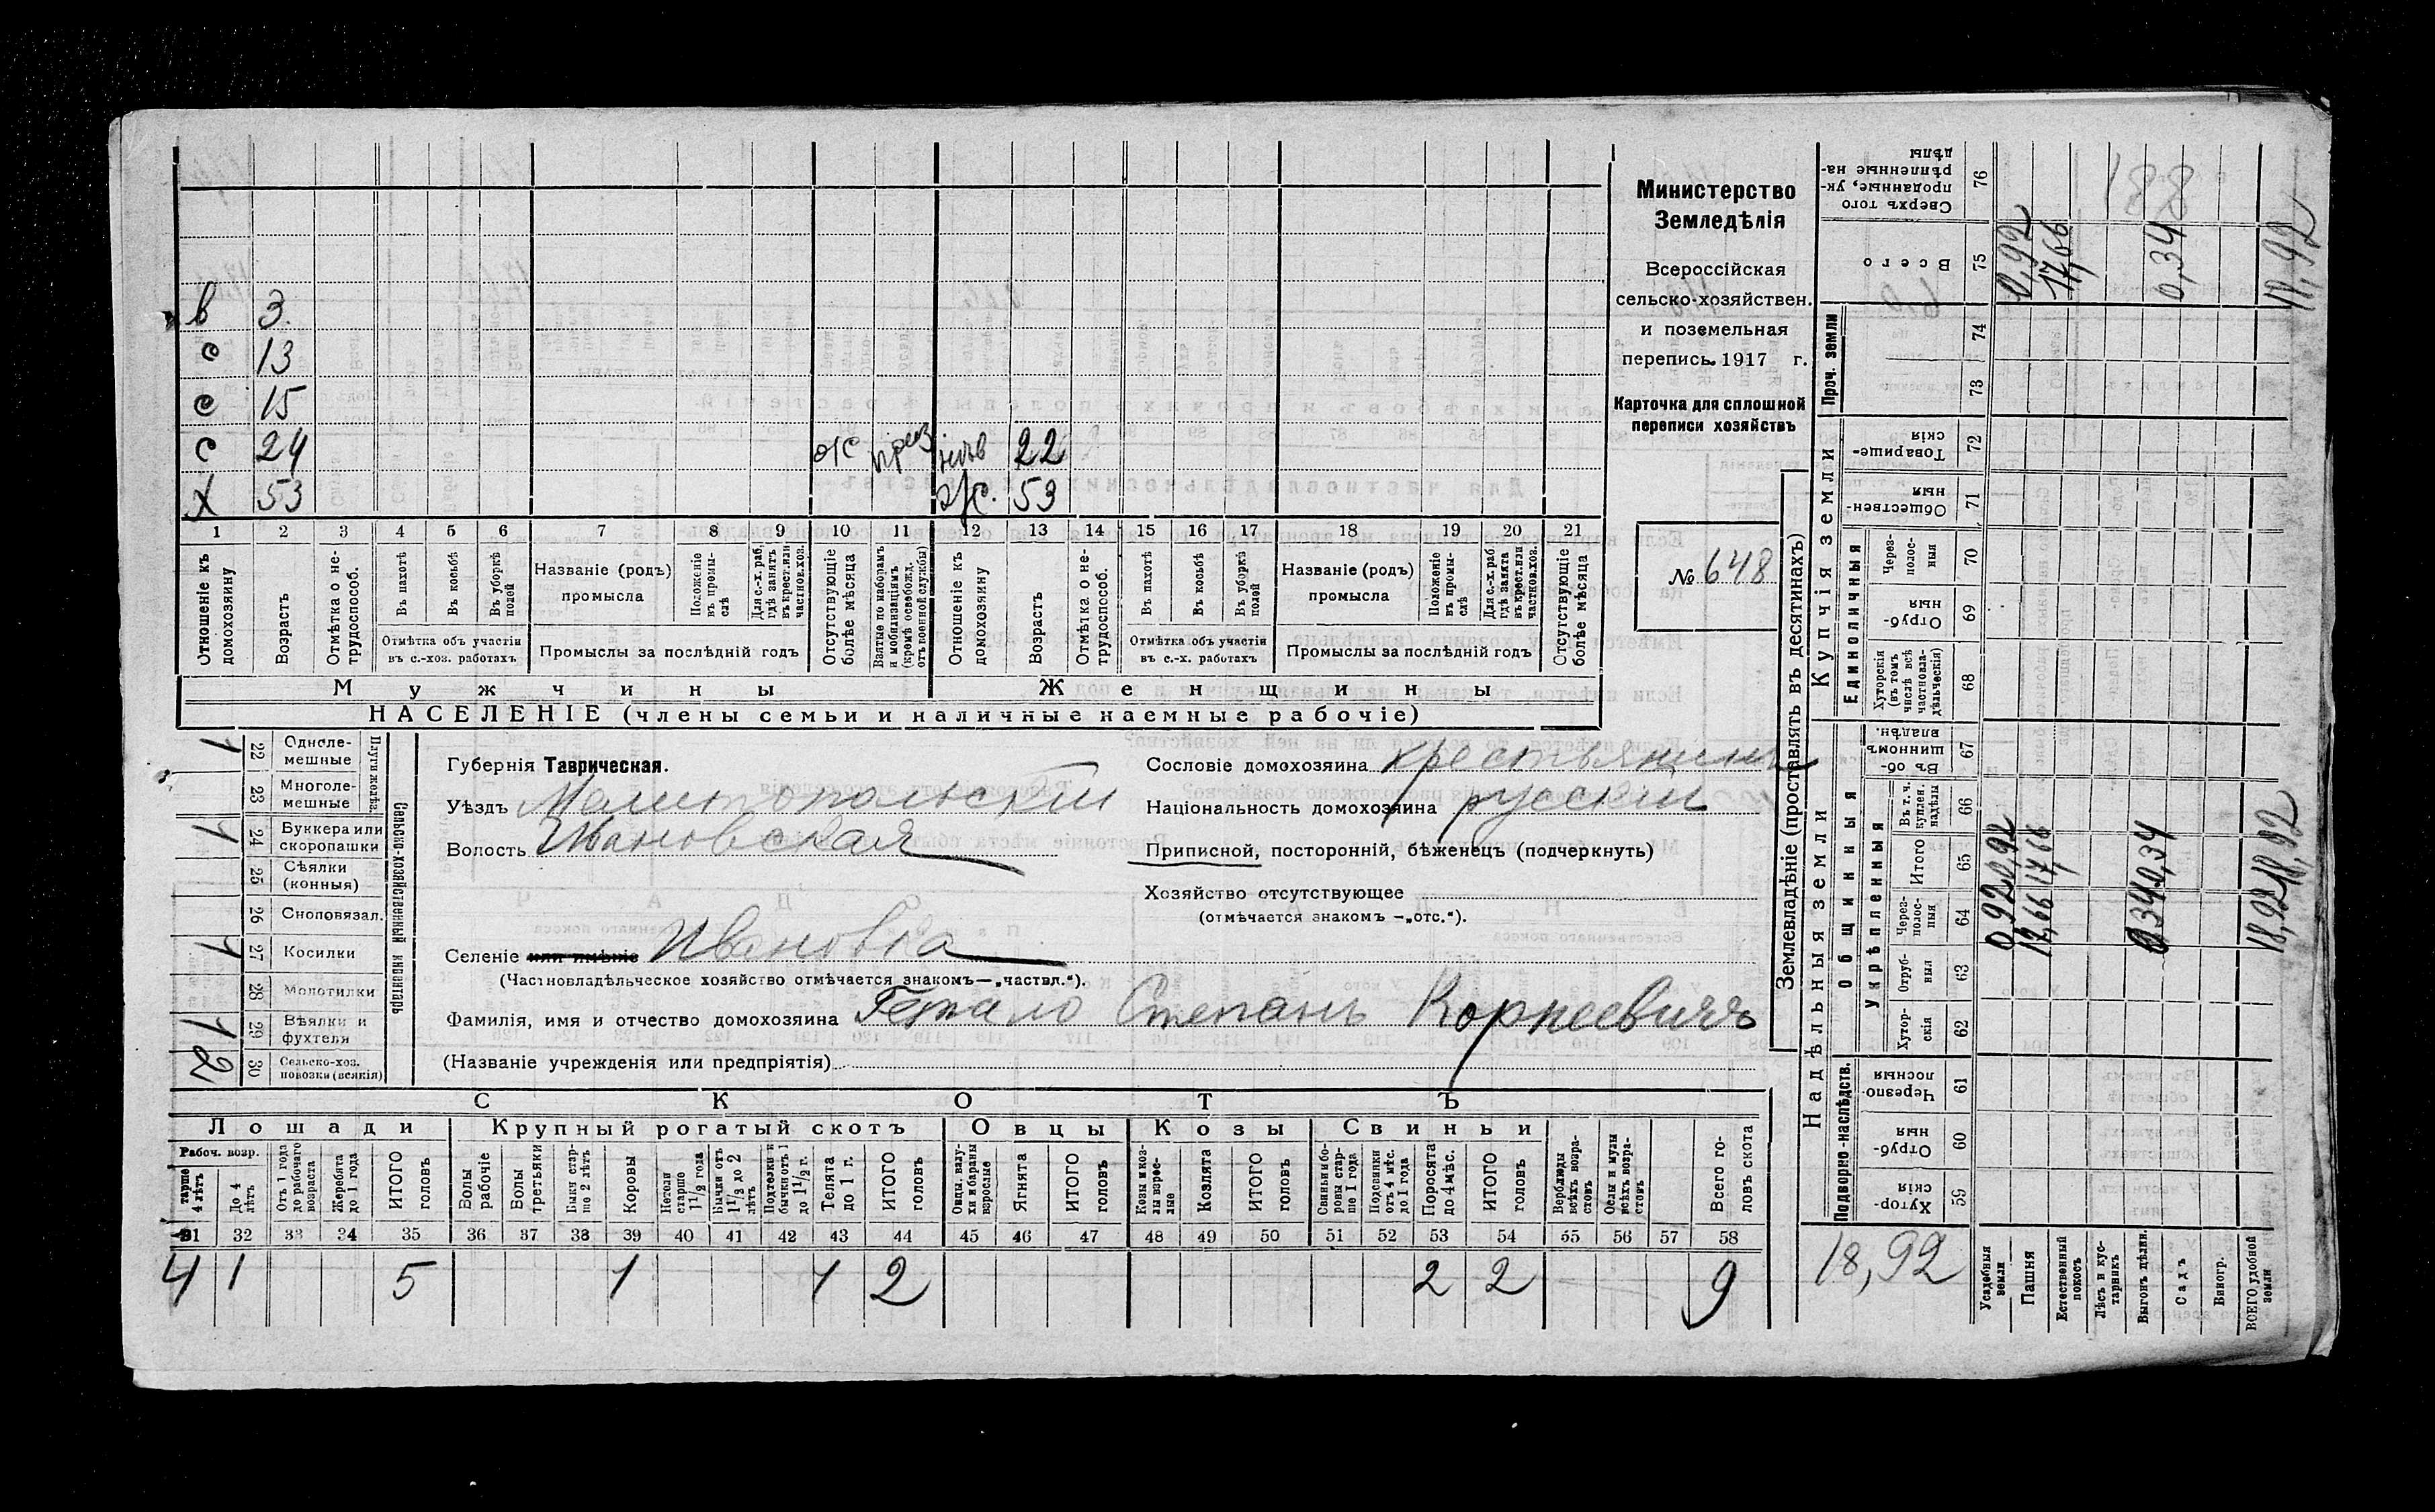 Министерство
Земледѣлія
Всероссійская
сельско-хозяйствен.
и поземельная
перепись 1917 г.
Карточка для сплошной
переписи хозяйствъ
№ 648
в 3.
с 13
с 15
с 24 нев 22
х 53 ж. 53
1 2 3 4 5 6 7 8 9 10 11 12 13 14 15 16 17 18 19 20 21
Отношеніе къ домохозяину
Возрастъ
Отмѣтка о нетрудоспособ.
Въ пахотѣ
Въ косьбѣ
Въ уборкѣ полей
Отмѣтка объ участіи въ с.-хоз. работахъ
Названіе (родъ) промысла
Положеніе въ промыслѣ
Для с.-х. раб. гдѣ занятъ въ крест. или частнов. хоз.
Промыслы за послѣдній годъ
Отсутствующіе болѣе мѣсяца
Взятые по наборамъ и мобилизаціямъ (кромѣ освобожд. отъ военной службы)
Отношеніе къ домохозяину
Возрастъ
Отмѣтка о нетрудоспособ.
Въ пахотѣ
Въ косьбѣ
Въ уборкѣ полей
Отмѣтка объ участіи въ с.-х. работахъ
Названіе (родъ) промысла
Положеніе въ промыслѣ
Для с.-х. раб. гдѣ занята въ крест. или частнов. хоз.
Промыслы за послѣдній годъ
Отсутствующіе болѣе мѣсяца
Мужчины Женщины
НАСЕЛЕНІЕ (члены семьи и наличные наемные рабочіе)
Сельско-хозяйственный инвентарь
1 22 Однолемешные
23 Многолемешные
1 24 Буккера или скоропашки
25 Сѣялки (конныя)
26 Сноповязал.
1 27 Косилки
28 Молотилки
1 29 Вѣялки и фухтеля
2 30 Сельско-хоз. повозки (всякія)
Губернія Таврическая.
Уѣздъ Мелитопольскій
Волость Ивановская
Селеніе или имѣніе Ивановка
(Частновладѣльческое хозяйство отмѣчается знакомъ—„частвл.“).
Фамилія, имя и отчество домохозяина Степанъ Корнеевичъ
(Названіе учрежденія или предпріятія)
Сословіе домохозяина крестьянинъ
Національность домохозяина русскій
Приписной, посторонній, бѣженецъ (подчеркнуть)
Хозяйство отсутствующее
(отмѣчается знакомъ —„отс.“).
СКОТЪ
Лошади Крупный рогатый скотъ Овцы Козы Свиньи
Рабоч. возр.
Старше 4 лѣтъ
До 4 лѣтъ
Отъ 1 года до рабочаго возраста
Жеребята до 1 года
ИТОГО головъ
Волы рабочіе
Волы третьяки
Быки старше 2 лѣтъ
Коровы
Нетели старше 1 1/2 года
Бычки отъ 1 1/2 до 2 лѣтъ
Подтелки и бычки отъ 1 до 1 1/2 г.
Телята до 1 г.
ИТОГО головъ
Овцы, валухи и бараны взрослые
Ягнята
ИТОГО головъ
Козы и козлы взрослые
Козлята
ИТОГО головъ
Свиньи и боровы старше 1 года
Подсвинки отъ 4 мѣс. до 1 года
Поросята до 4 мѣс.
ИТОГО головъ
Верблюды всѣхъ возрастовъ
Ослы и мулы всѣхъ возрастовъ
Всего головъ скота
31 32 33 34 35 36 37 38 39 40 41 42 43 44 45 46 47 48 49 50 51 52 53 54 55 56 57 58
4 1 5 1 1 2 2 2 9
Землевладѣніе (проставлять въ десятинахъ)
Надѣльныя земли Купчія земли Проч. земли
Подворно-наслѣдств. Общинныя Единоличныя
Укрѣпленныя
Сверхъ того проданные, укрѣпленные надѣлы 76
Всего 75 0,92 17,66 0,34 18,92
74
73
Товарищескія 72
Общественныя 71
Черезполосныя 70
Отрубныя 69
Хуторскія (въ томъ числѣ всѣ частновладѣльческія) 68
Въ общинномъ владѣн. 67
Въ т. ч. куплен. надѣлы 66
Итого 65 0,92 17,66 0,34 18,92
Черезполосныя 64 0,92 17,66 0,34 18,92
Отрубныя 63
Хуторскія 62
Черезполосныя 61
Отрубныя 60
Хуторскія 59
18,92
Усадебныя земли
Пашня
Естественный покосъ
Лѣсъ и кустарникъ
Выгонъ цѣлин.
Садъ
Виногр.
ВСЕГО удобной земли
188